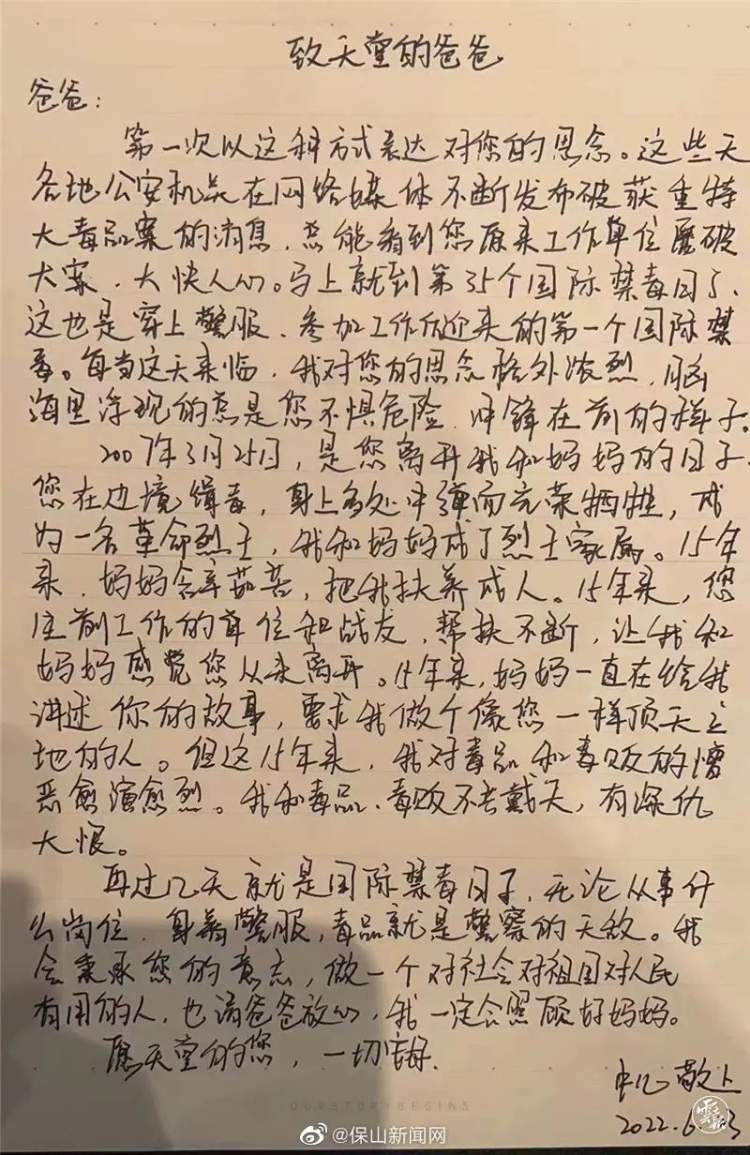 致天堂的爸爸
爸爸：
第一次以这种方式表达对您的思念。这些天
各地公安机关在网络媒体不断发布破获重特
大毒品案的消息，总能看到您原来工作单位屡破
大案，大快人心。马上就到第35个国际禁毒日了，
这也是穿上警服、参加工作以来的第一个国际禁
毒。每当这天来临，我对您的思念格外浓烈，脑
海里浮现的总是您不惧危险，冲锋在前的样子。
2007年3月25日，是您离开我和妈妈的日子，
您在边境缉毒，身上多处中弹而光荣牺牲，成
为一名革命烈士，我和妈妈成了烈士家属。15年
来，妈妈含辛茹苦，把我扶养成人。15年来，您
生前工作的单位和战友，帮扶不断，让我和
妈妈感觉您从未离开。15年来，妈妈一直在给我
讲述你的故事，要求我做个像您一样顶天立
地的人。但这15年来，我对毒品和毒贩的憎
恶愈演愈烈。我和毒品、毒贩不共戴天，有深仇
大恨。
再过几天就是国际禁毒日子，无论从事什
么岗位，身着警服，毒品就是警察的天敌。我
会秉承您的意志，做一个对社会对祖国对人民
有用的人，也请爸爸放心，我一定会照顾好妈妈。
愿天堂的您，一切安好。
敬上
2022.6.
OUR STORY BEGINS
@保山新闻网